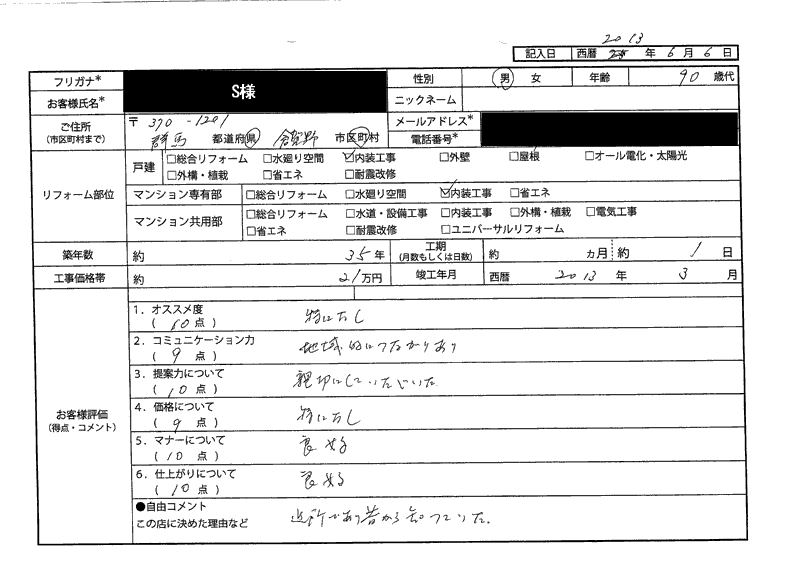 2013
記入日 西暦 年 6月6日
フリガナ*
お客様氏名*
S様
性別 男 女 年齢 90歳代
ニックネーム
ご住所
(市区町村まで)
〒370-1201
群馬 都道府県 倉賀野 市区町村
メールアドレス*
電話番号*
リフォーム部位
戸建 □総合リフォーム □水廻り空間 ☑内装工事 □外壁 □屋根 □オール電化・太陽光
□外構・植栽 □省エネ □耐震改修
マンション専有部 □総合リフォーム □水廻り空間 ☑内装工事 □省エネ
マンション共用部 □総合リフォーム □水道・設備工事 □内装工事 □外構・植栽 □電気工事
□省エネ □耐震改修 □ユニバーサルリフォーム
築年数 約 35年 工期 (月数もしくは日数) 約 ヵ月 約 1日
工事価格帯 約 21万円 竣工年月 西暦 2013年 3月
お客様評価
(得点・コメント)
1．オススメ度
(10点) 特になし
2．コミュニケーション力
(9点) 地域的につながりあり
3．提案力について
(10点) 親切にしていただいた
4．価格について
(9点) 特になし
5．マナーについて
(10点) 良好
6．仕上がりについて
(10点) 良好
●自由コメント
この店に決めた理由など
近所であり昔から知っていた.